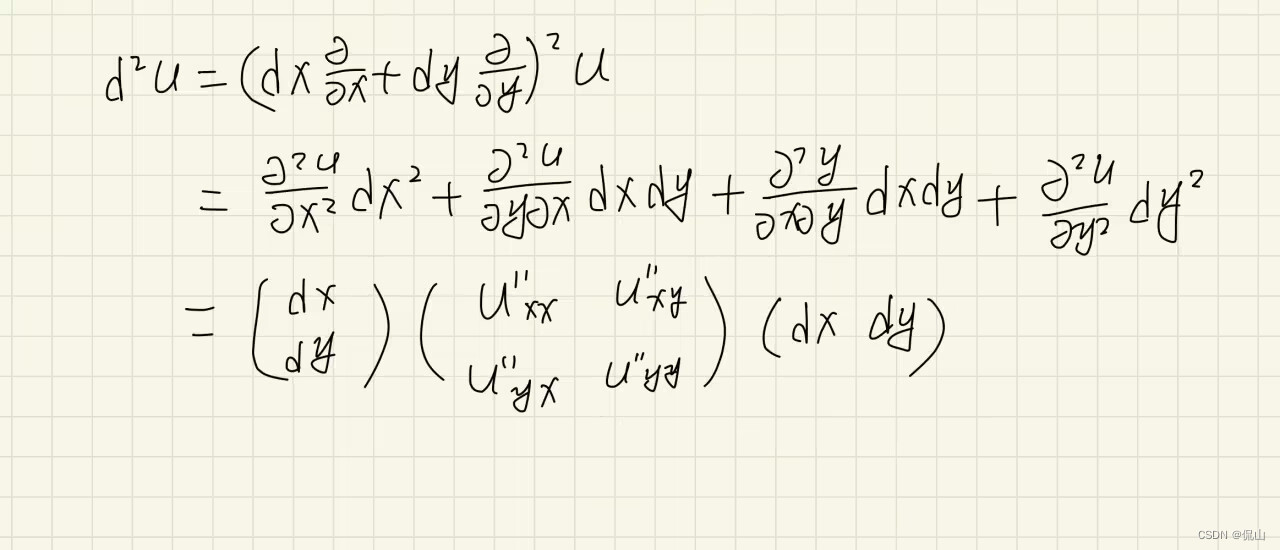 d²u = (dx ∂/∂x + dy ∂/∂y)² u
= ∂²u/∂x² dx² + ∂²u/∂y∂x dxdy + ∂²y/∂x∂y dxdy + ∂²u/∂y² dy²
= (dx; dy) (u''xx u''xy; u''yx u''yy) (dx dy)
CSDN @侃山